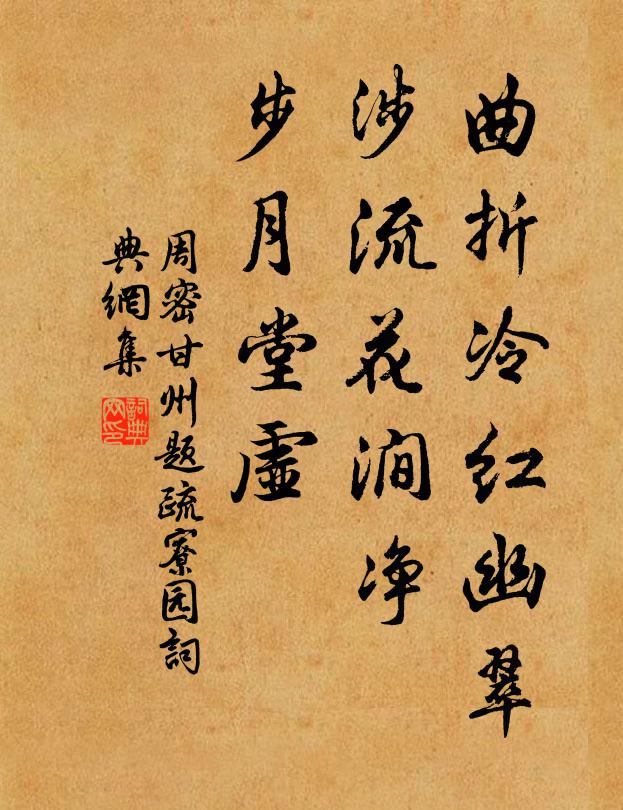 曲折冷红幽翠
涉流花涧净
步月堂虚
周密甘州题疏寮园詞
典網集
詞典網印